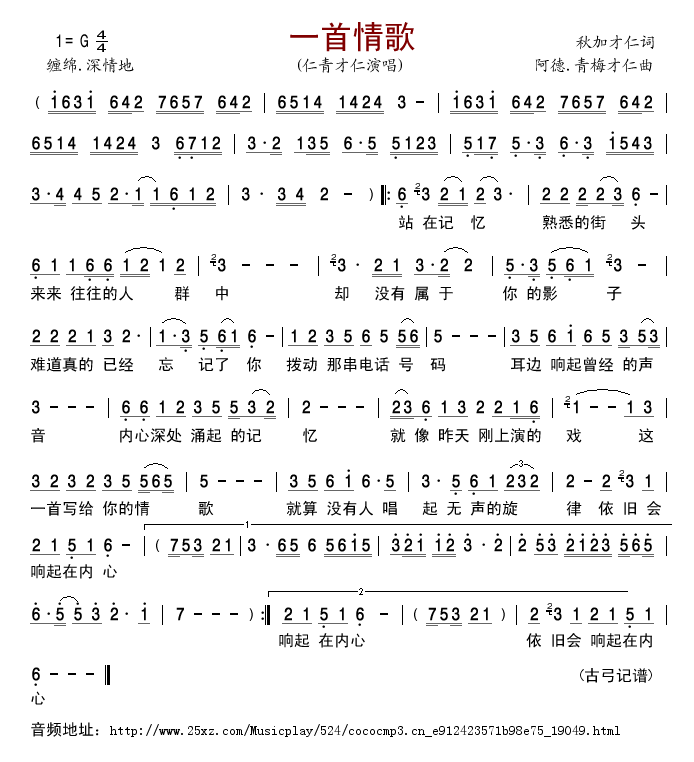 一首情歌
1= G 4/4
秋加才仁词
缠绵.深情地
(仁青才仁演唱)
阿德.青梅才仁曲
( 1631 642 7657 642 | 6514 1424 3 - | 1631 642 7657 642 |
6514 1424 3 6712 | 3·2 135 6·5 5123 | 517 5·3 6·3 1543 |
3·4 45 2·1 1612 | 3· 34 2 - ) ||: 6 23 21 23· | 2 2 2 2 3 6 - |
站 在记 忆 熟悉的街 头
6 1 1 6 6 1 2 1 2 | 23 - - - | 23· 21 3·2 2 | 5·3 5·6 1 23 - |
来来 往往的人 群 中 却 没有 属 于 你 的影 子
2 2 2 1 3 2· | 1·3 5 61 6 - | 1 2 3 5 6 5 56 | 5 - - - | 3 5 6 1 6 5 3 53 |
难道真的 已经 忘 记了 你 拨动 那串电话 号 码 耳边 响起曾经 的声
3 - - - | 6 6 1 2 3 5 5 3 2 | 2 - - - | 23 6 1 3 2 2 1 6 | 21 - - 1 3 |
音 内心深处 涌起 的记 忆 就 像 昨天 刚上演的 戏 这
3 2 3 2 3 5 565 | 5 - - - | 3 5 6 1 6·5 | 3· 5 6 1 232 | 2 - 23 1 |
3
一首写给 你的情 歌 就算 没有人 唱 起 无 声的旋 律 依 旧 会
1
2 1 5 1 6 - | ( 753 21 | 3· 65 6 5615 | 321 12 3·2 | 2 53 2123 565 |
响起在内 心
2
6·5 5 3 2·1 | 7 - - - ) :|| 2 1 5 1 6 - | ( 753 21 ) | 2 23 1 2 1 5 1 |
响起 在内心 依 旧会 响起在内
6 - - - ||
(古弓记谱)
心
音频地址: http://www.25xz.com/Musicplay/524/cococmp3.cn_e912423571b98e75_19049.html